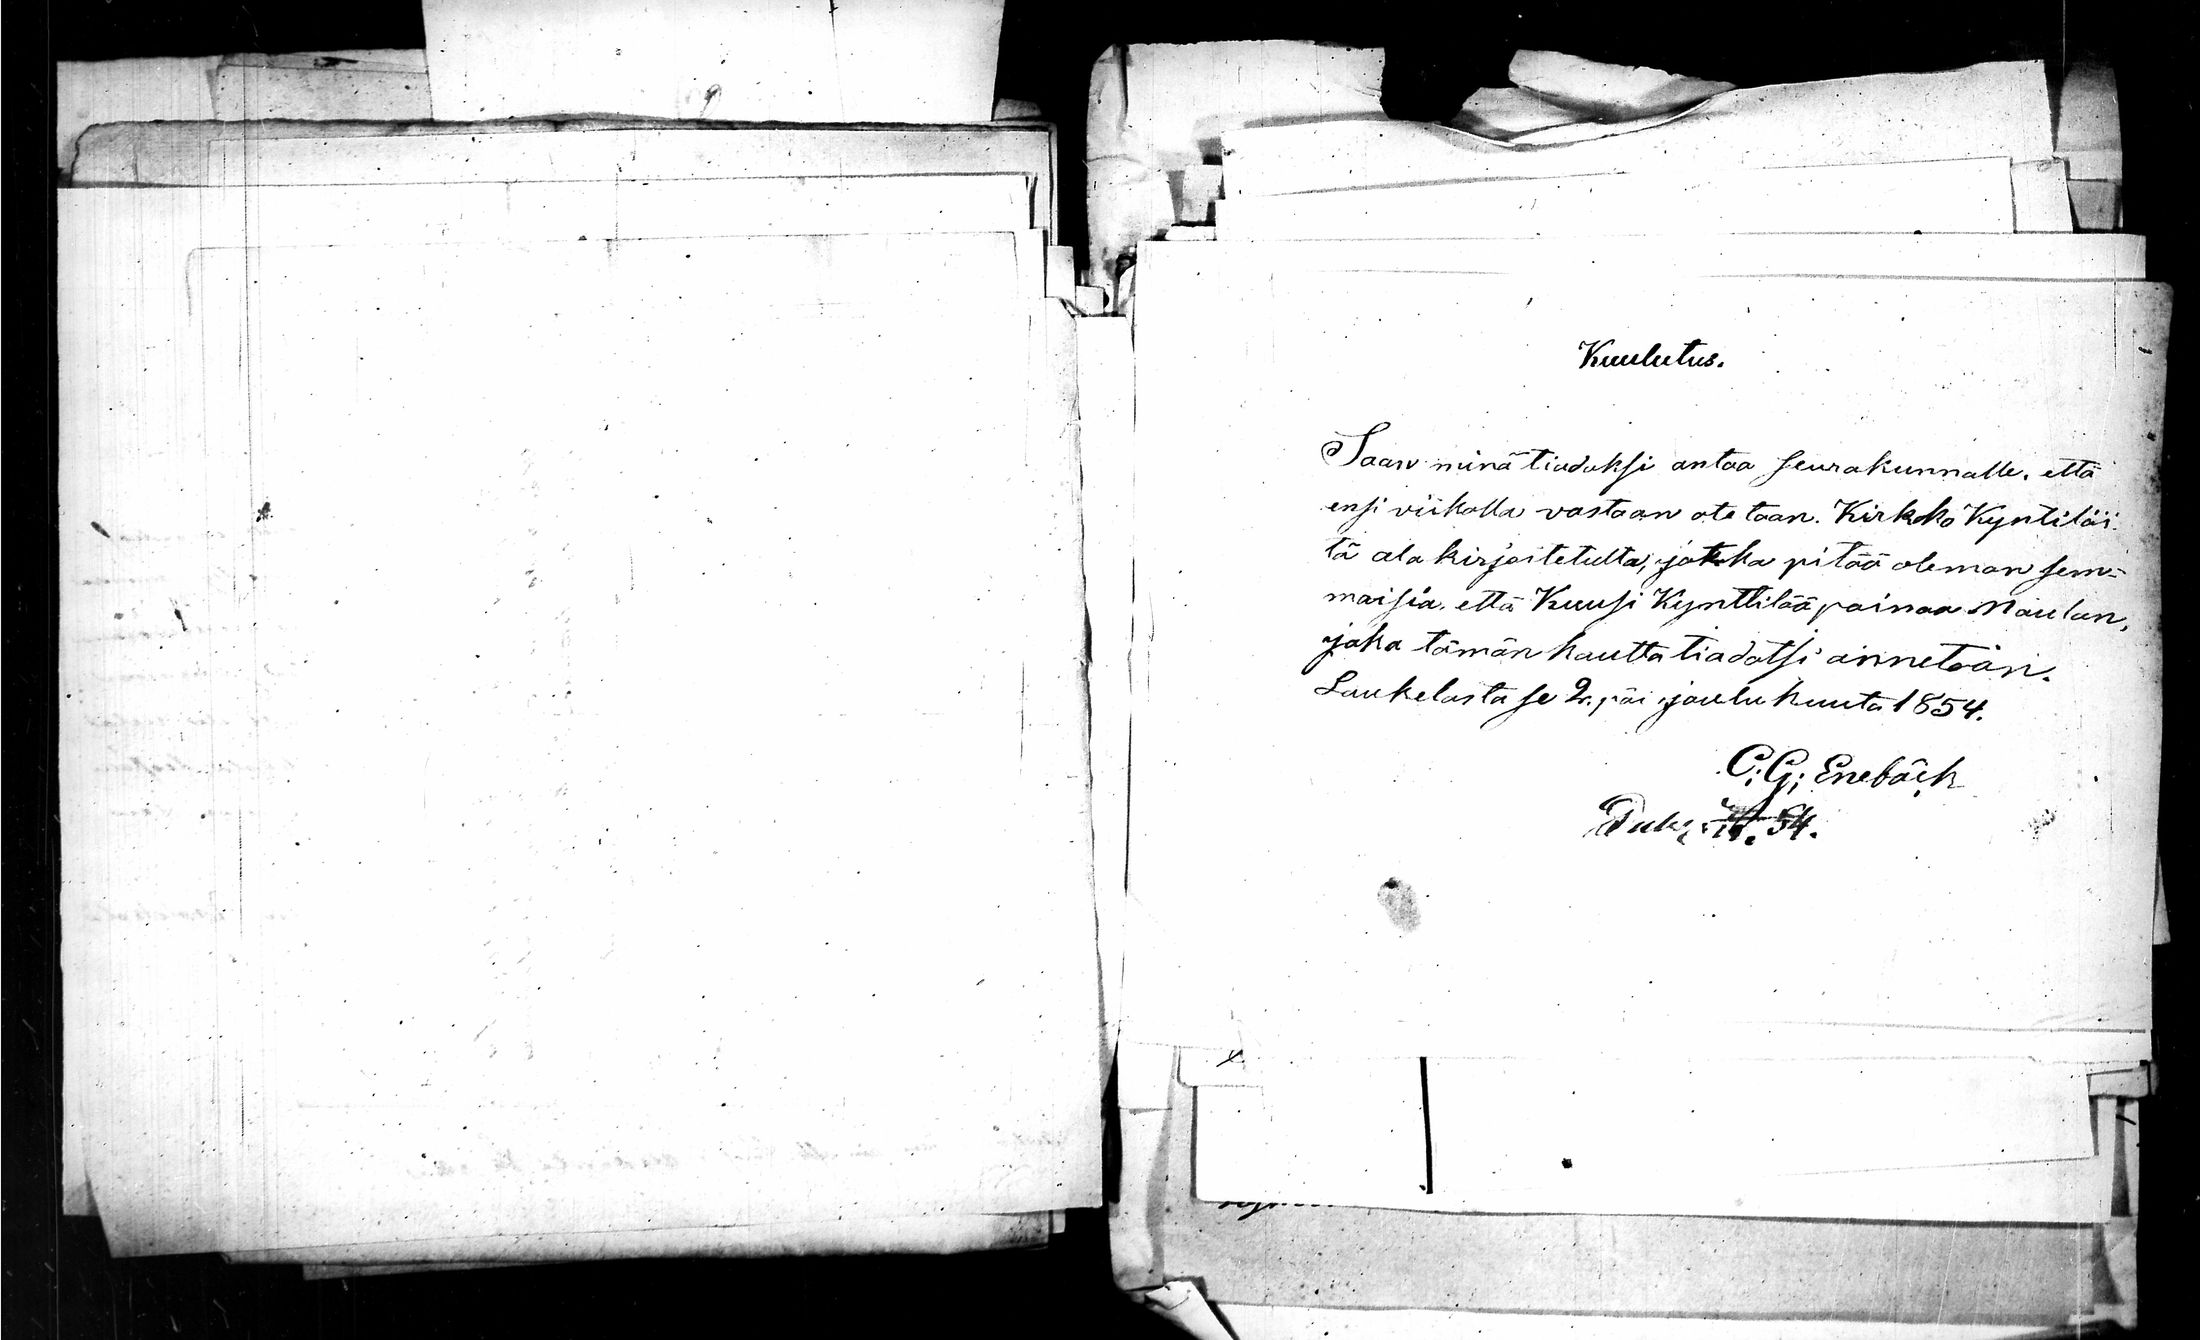 Kuulutus.
Saan minä tiadoksi antaa seurakunnalle, että
ensi viikolla vastaan otetaan. Kirkko Kyntilöi-
tä ala kirjoitetulta, jotka pitää oleman sem-
maisia, että Kuusi Kynttilää painaa Naulan,
joka tämän kautta tiadotsi annetaan.
Laukelasta se 2. päi joulu kuuta 1854.
C: G: Enebäck
Publ. 54.